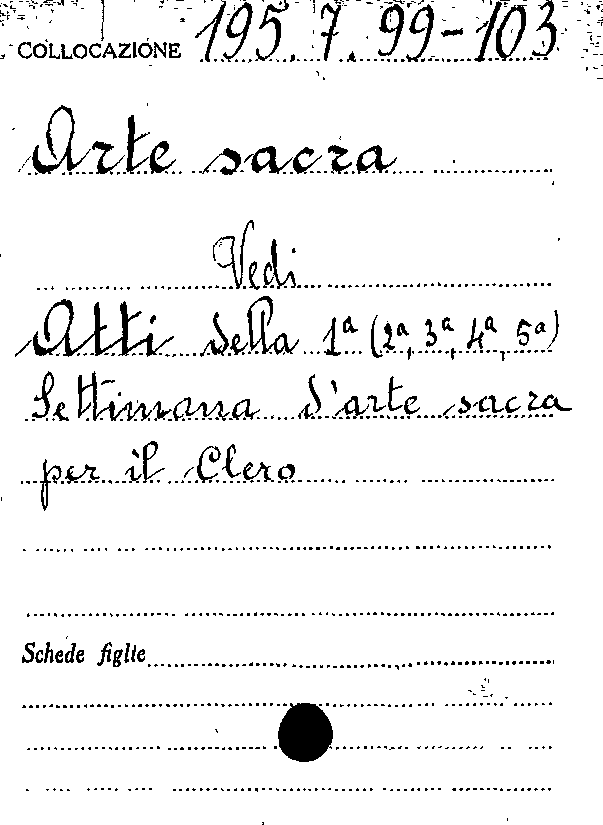 COLLOCAZIONE 195.7.99-103
Arte sacra
Vedi
Atti della 1ª (2ª, 3ª, 4ª, 5ª)
Settimana d'arte sacra
per il Clero
Schede figlie